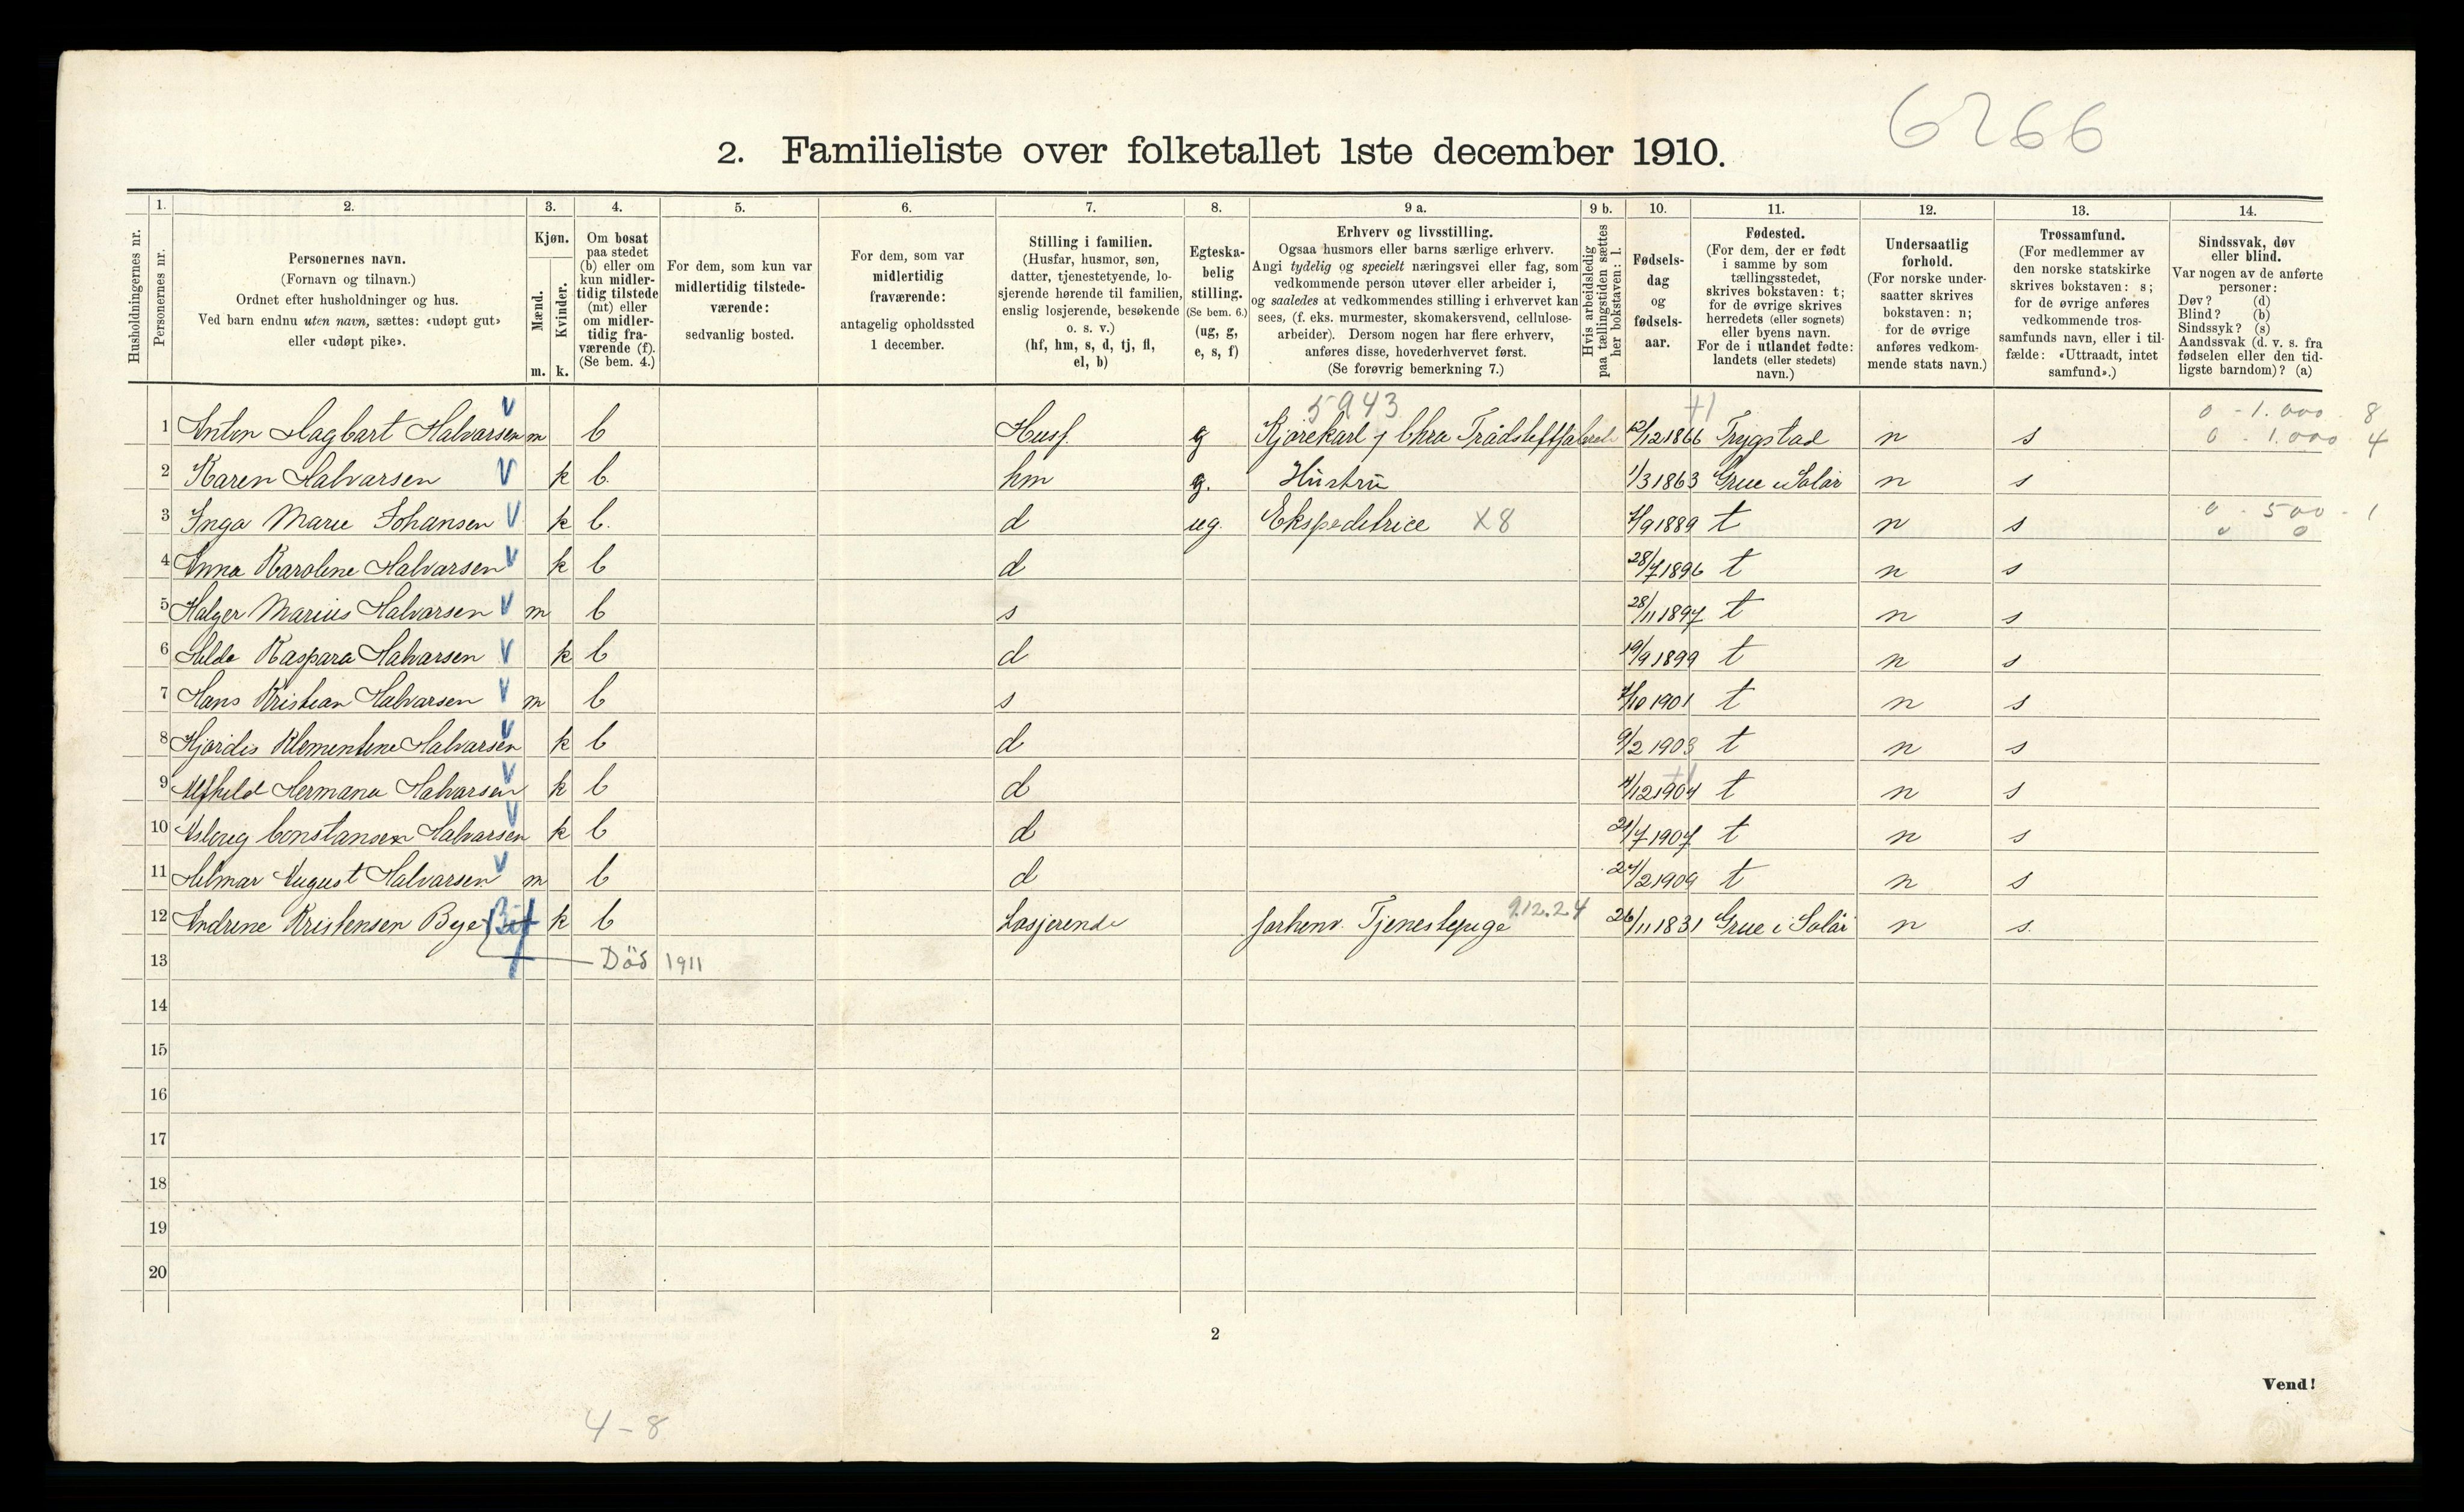 6266
2. Familieliste over folketallet 1ste december 1910.
Husholdningernes nr.
1. Personernes nr.
2. Personernes navn. (Fornavn og tilnavn.) Ordnet efter husholdninger og hus. Ved barn endnu uten navn, sættes: «udøpt gut» eller «udøpt pike».
3. Kjøn. Mænd. m. Kvinder. k.
4. Om bosat paa stedet (b) eller om kun midlertidig tilstede (mt) eller om midlertidig fraværende (f). (Se bem. 4.)
5. For dem, som kun var midlertidig tilstedeværende: sedvanlig bosted.
6. For dem, som var midlertidig fraværende: antagelig opholdssted 1 december.
7. Stilling i familien. (Husfar, husmor, søn, datter, tjenestetyende, losjerende hørende til familien, enslig losjerende, besøkende o. s. v.) (hf, hm, s, d, tj, fl, el, b)
8. Egteskabelig stilling. (Se bem. 6.) (ug, g, e, s, f)
9 a. Erhverv og livsstilling. Ogsaa husmors eller barns særlige erhverv. Angi tydelig og specielt næringsvei eller fag, som vedkommende person utøver eller arbeider i, og saaledes at vedkommendes stilling i erhvervet kan sees, (f. eks. murmester, skomakersvend, cellulosearbeider). Dersom nogen har flere erhverv, anføres disse, hovederhvervet først. (Se forøvrig bemerkning 7.)
9 b. Hvis arbeidsledig paa tællingstiden sættes her bokstaven: l.
10. Fødselsdag og fødselsaar.
11. Fødested. (For dem, der er født i samme by som tællingsstedet, skrives bokstaven: t; for de øvrige skrives herredets (eller sognets) eller byens navn. For de i utlandet fødte: landets (eller stedets) navn.)
12. Undersaatlig forhold. (For norske undersaatter skrives bokstaven: n; for de øvrige anføres vedkommende stats navn.)
13. Trossamfund. (For medlemmer av den norske statskirke skrives bokstaven: s; for de øvrige anføres vedkommende trossamfunds navn, eller i tilfælde: «Uttraadt, intet samfund».)
14. Sindssvak, døv eller blind. Var nogen av de anførte personer: Døv? (d) Blind? (b) Sindssyk? (s) Aandssvak (d. v. s. fra fødselen eller den tidligste barndom)? (a)
5943 +1 0 - 1.000 8
1 Anton Hagbart Halvarsen V m b Husf. g Kjørekarl Chra 12/12 1866 Trygstad n s 0 - 1.000 4
2 Karen Halvarsen V k b. hm g. Hustru 1/3 1863 Grue i Solør n s
3 Inga Marie Johansen V k b. d ug. Ekspeditrice X8 /9 1889 t n s 0 - 500 - 1
0 0
4 Anna Karoline Halvarsen V k b d 28/7 1896 t n s
5 Holger Marius Halvarsen V m b s 28/11 1897 t n s
6 Hilda Kaspara Halvarsen V k b d 19/9 1899 t n s
7 Hans Kristian Halvarsen V m b s /10 1901 t n s
8 Hjørdis Klementine Halvarsen V k b d 9/2 1903 t n s
9 Alfhild Hermana Halvarsen V k b d /12 1904 t n s
10 Aslaug Constanse Halvarsen V k b d 21/7 1907 t n s
11 Hilmar August Halvarsen V m b d 24/2 1909 t n s
12 Andrine Kristensen Bye k b Losjerende forhenv. Tjenestepige 9.12.24 26/11 1831 Grue i Solør n s.
13 Död 1911
14
15
16
17
18
19
20
2
Vend!
4-8